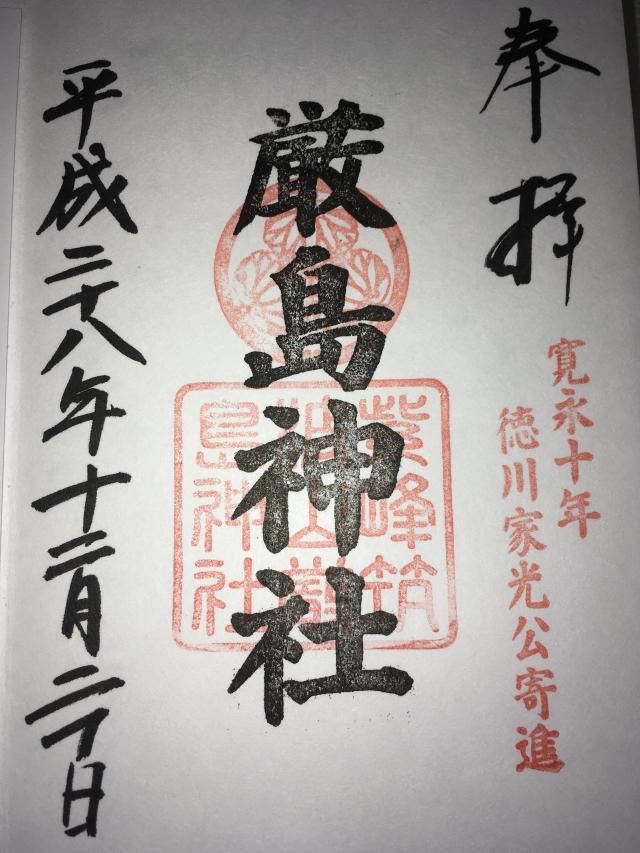 奉拝
寛永十年
徳川家光公寄進
厳島神社
紫峰筑
波山嚴
島神社
平成二十八年十二月二十日